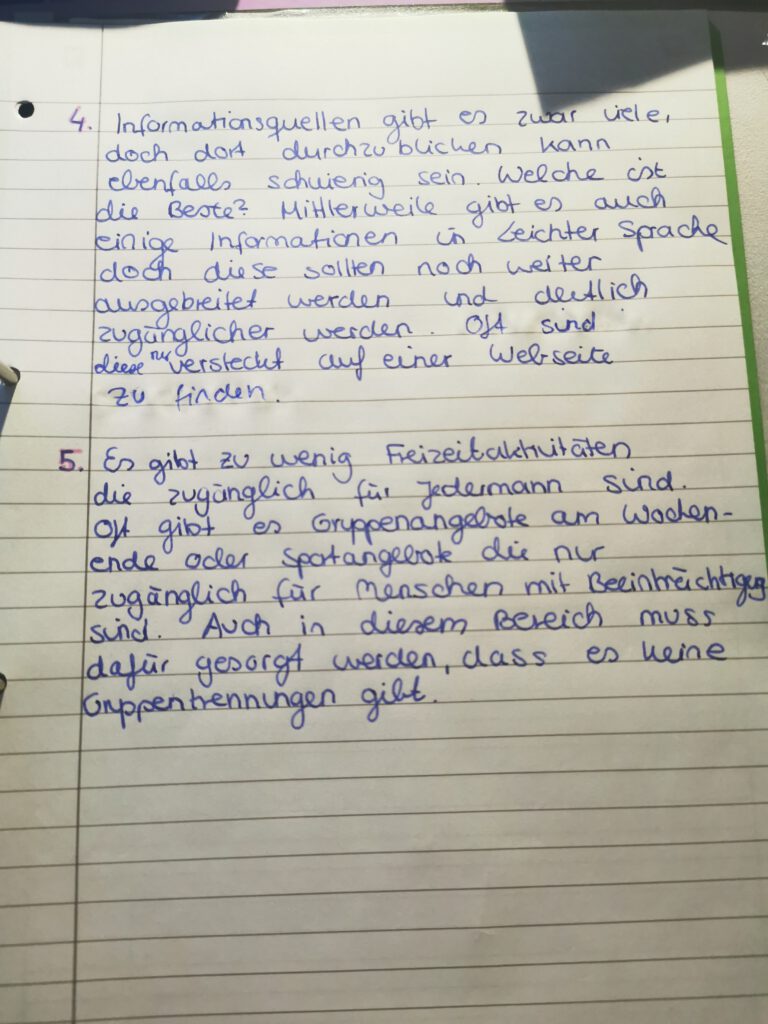 4. Informationsquellen gibt es zwar viele,
doch dort durchzublicken kann
ebenfalls schwierig sein. Welche ist
die Beste? Mittlerweile gibt es auch
einige Informationen in Leichter Sprache
doch diese sollten noch weiter
ausgebreitet werden und deutlich
zugänglicher werden. Oft sind
diese nur versteckt auf einer Webseite
zu finden.
5. Es gibt zu wenig Freizeitaktivitäten
die zugänglich für Jedermann sind.
Oft gibt es Gruppenangebote am Wochen-
ende oder Sportangebote die nur
zugänglich für Menschen mit Beeinträchtigung
sind. Auch in diesem Bereich muss
dafür gesorgt werden, dass es keine
Gruppentrennungen gibt.